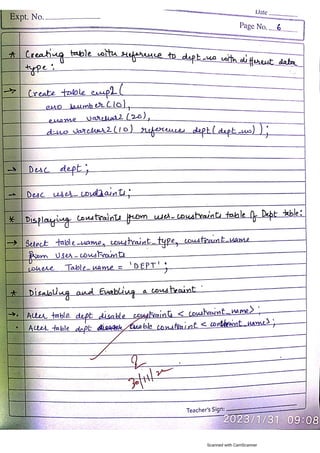 Date
Expt. No.
Page No. 6
* Creating table with reference to dept_no with different data
type :
→ Create table emp2 (
eno number (10),
ename varchar2 (20),
d-no varchar2 (10) references dept (dept_no) );
→ Desc dept ;
→ Desc user_constraints ;
* Displaying constraints from user-constraints table of Dept table:
→ Select table_name, constraint_type, constraint_name
from User-constraints
where Table_name = 'DEPT' ;
* Disabling and Enabling a constraint
→ . Alter table dept disable constraints < constraint_name> ;
. Alter table dept enable constraint < constraint_names ;
30/11/22
Teacher's Sign:
2023/1/31 09:08
Scanned with CamScanner